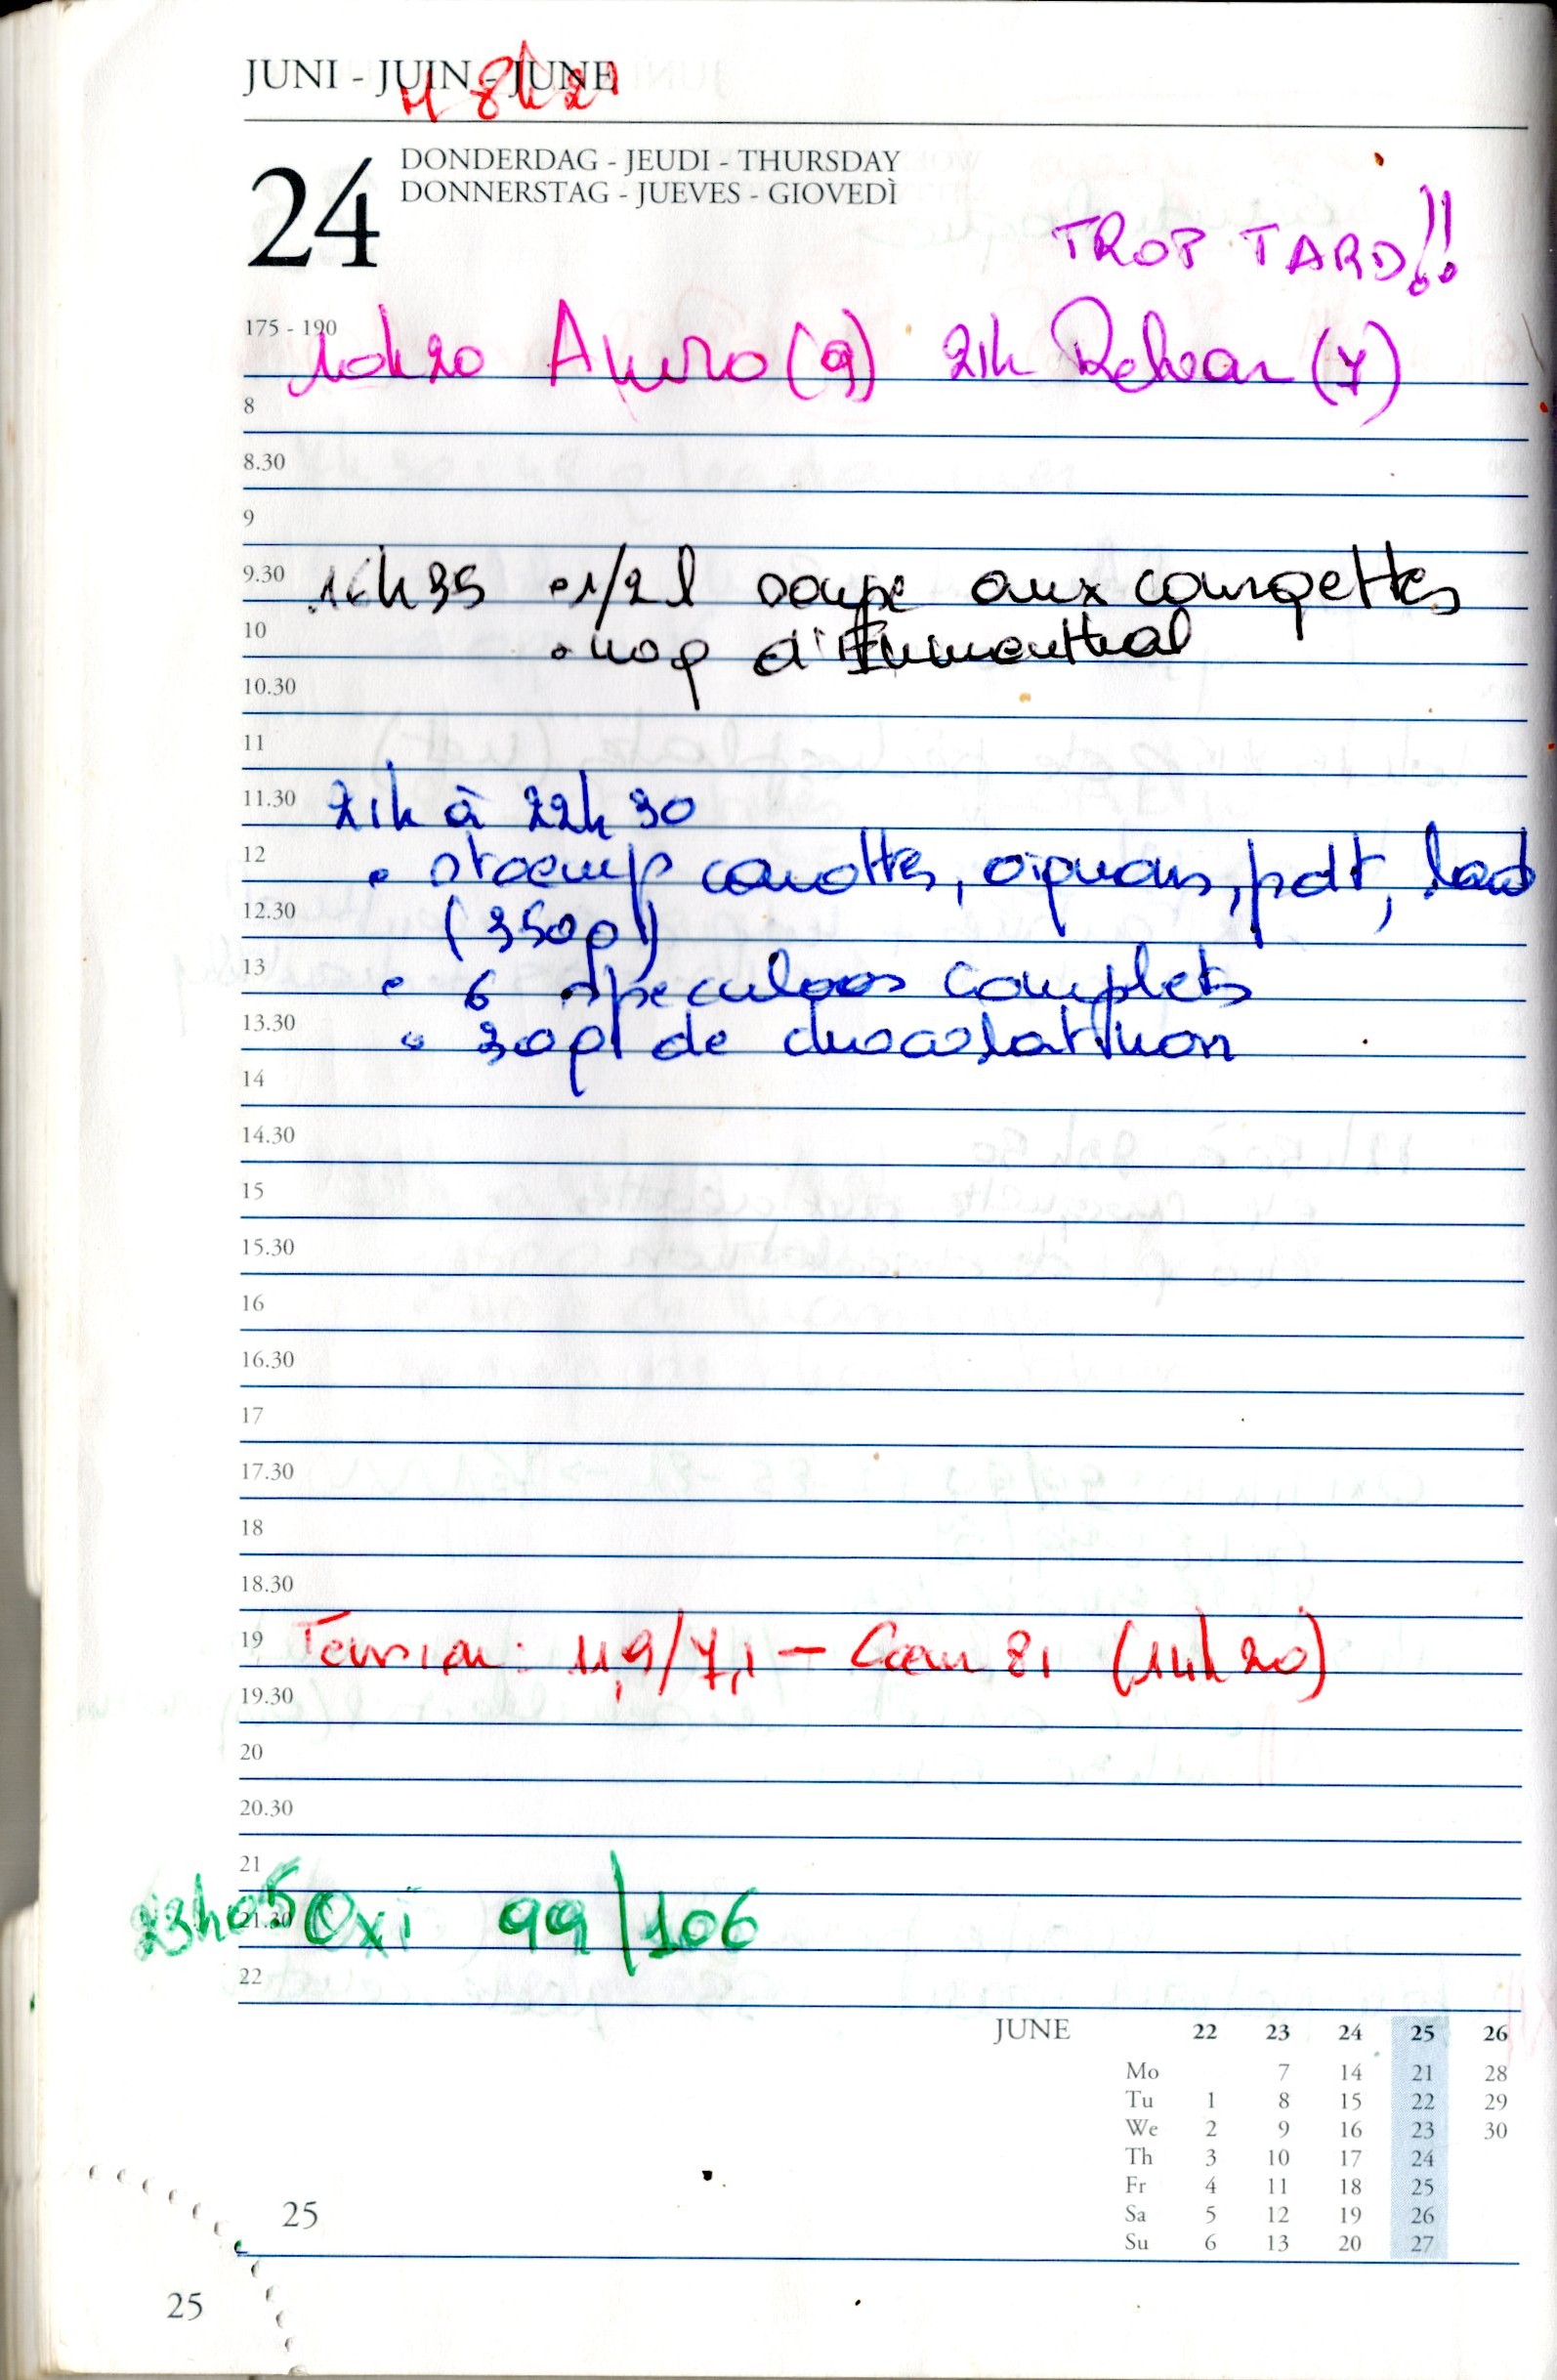 JUNI - JUIN - JUNE
24
DONDERDAG - JEUDI - THURSDAY
DONNERSTAG - JUEVES - GIOVEDÌ
TROP TARD!!
175 - 190
10h20 (9) 21h (7)
8
8.30
9
9.30
16h35 • 1/2 l soupe aux courgettes
10
• 110g d'Emmenthal
10.30
11
11.30
21h à 22h30
12
• stoemp carottes, oignons, pdt, lard
12.30
(350g)
13
• 6 speculoos complets
13.30
• 30g de chocolat noir
14
14.30
15
15.30
16
16.30
17
17.30
18
18.30
19
Tension: 11,9/7,1 - Coeur 81 (14h20)
19.30
20
20.30
21
21.30
23h05 Oxi 99/106
22
JUNE 22 23 24 25 26
Mo 7 14 21 28
Tu 1 8 15 22 29
We 2 9 16 23 30
Th 3 10 17 24
Fr 4 11 18 25
Sa 5 12 19 26
Su 6 13 20 27
25
25